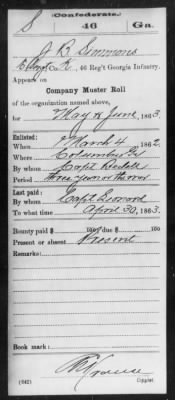 Confederate.
S 46 Ga.
J B Simmons
Co. K, 46 Reg't Georgia Infantry.
Appears on
Company Muster Roll
of the organization named above,
for May & June, 1863.
Enlisted:
When March 4, 1862.
Where Columbus Ga
By whom Capt
Period Three years or the war
Last paid:
By whom Capt Leonard
To what time April 30, 1863.
Bounty paid $ 100; due $ 100
Present or absent Present
Remarks:
Book mark:
(642) Copyist.